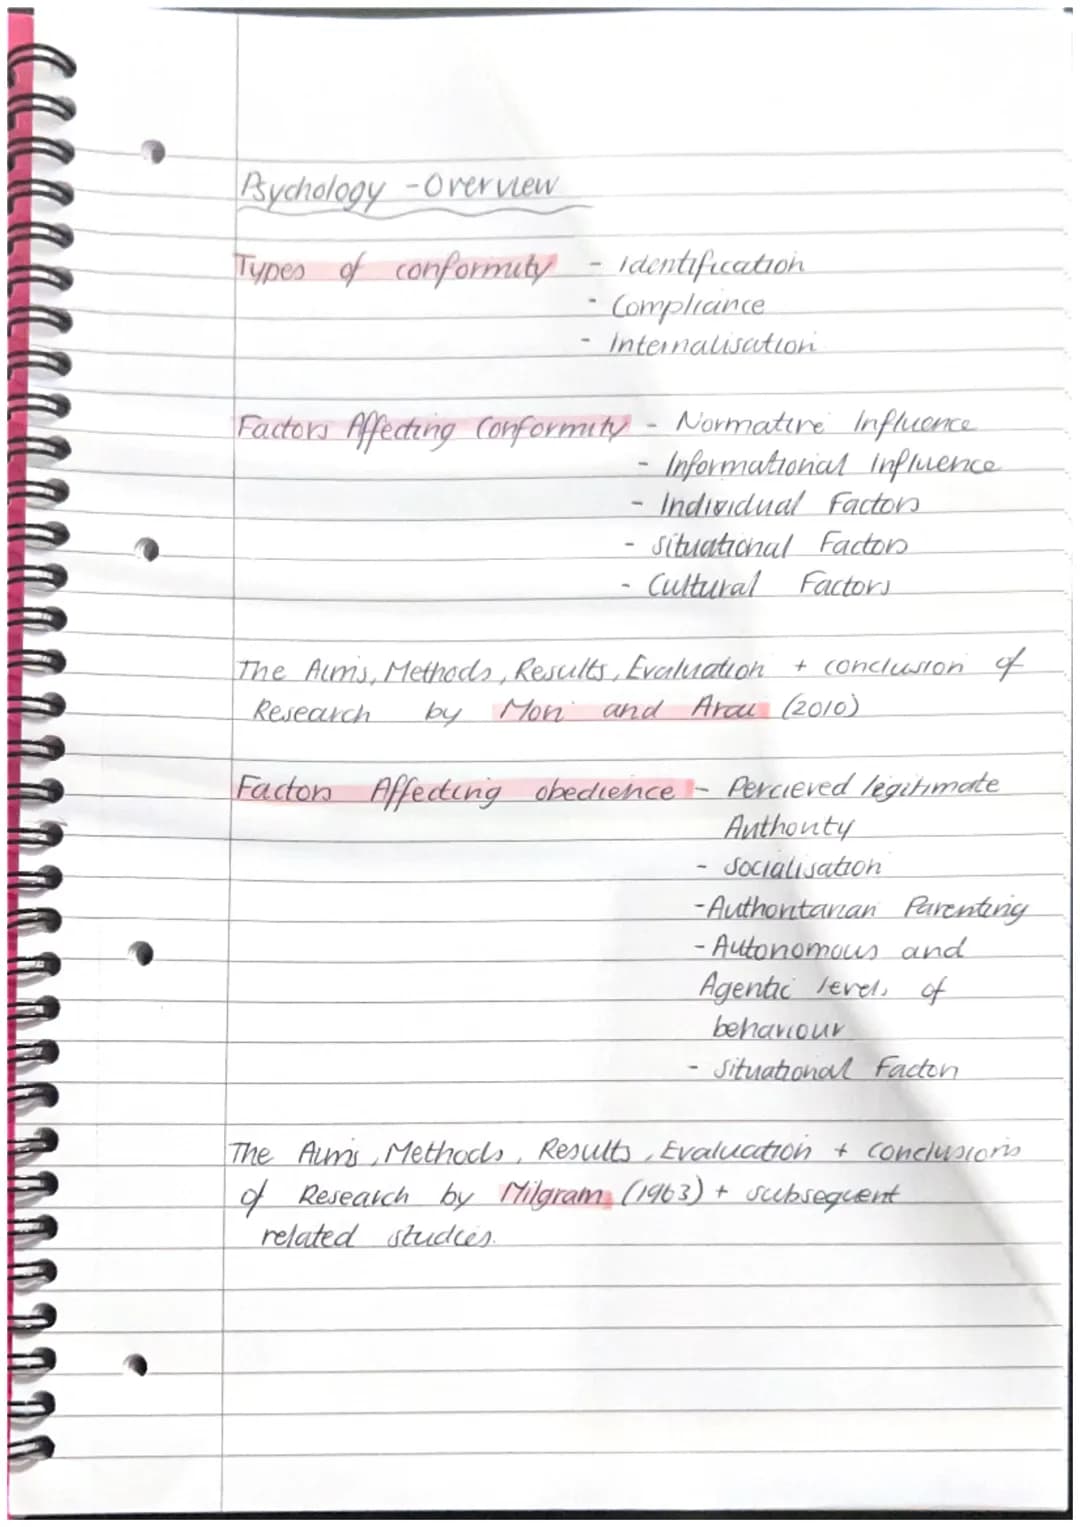 Psychology - Overview
Types of conformity - Identification
- Compliance
- Internalisation
Factors Affecting Conformity - Normative Influence
- Informational Influence
- Individual Factors
- Situational Factors
- Cultural Factors
The Aims, Methods, Results, Evaluation + conclusion of
Research by Mori and Arai (2010)
Factors Affecting obedience - Percieved legitimate
Authority
- Socialisation
- Authoritarian Parenting
- Autonomous and
Agentic levels of
behaviour
- Situational Factors
The Aims, Methods, Results, Evaluation + Conclusions
of Research by Milgram (1963) + subsequent
related studies.